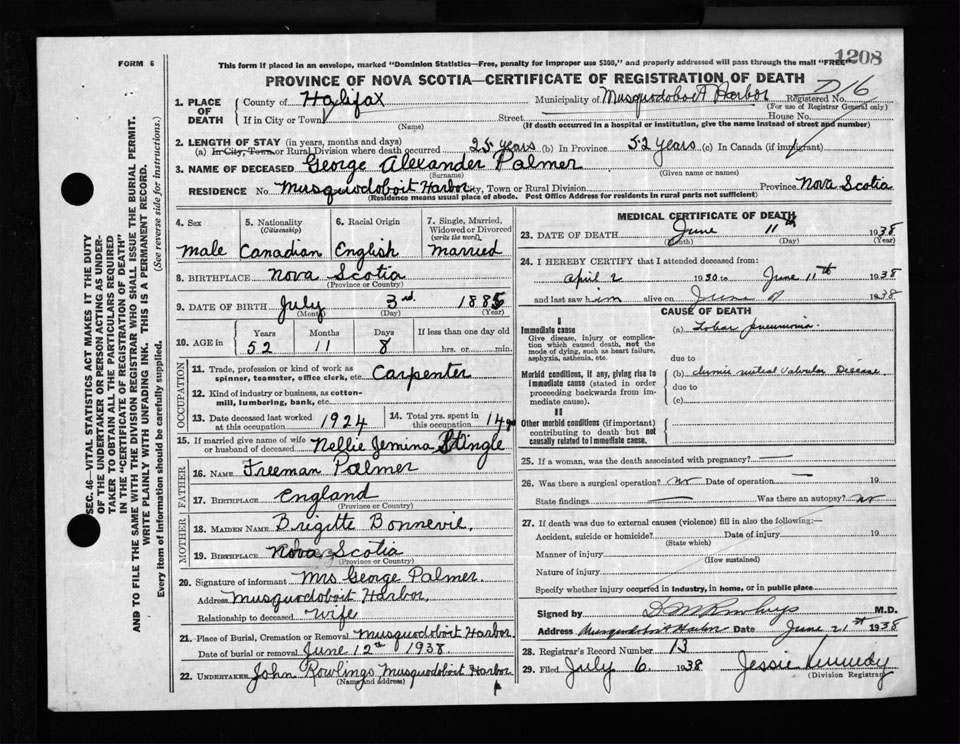 1208
FORM 6
This form if placed in an envelope, marked "Dominion Statistics—Free, penalty for improper use $300", and properly addressed will pass through the mail "FREE"
PROVINCE OF NOVA SCOTIA—CERTIFICATE OF REGISTRATION OF DEATH
D/6
SEC. 46—VITAL STATISTICS ACT MAKES IT THE DUTY
OF THE UNDERTAKER OR PERSON ACTING AS UNDER-
TAKER TO OBTAIN ALL THE PARTICULARS REQUIRED
IN THE "CERTIFICATE OF REGISTRATION OF DEATH"
AND TO FILE THE SAME WITH THE DIVISION REGISTRAR WHO SHALL ISSUE THE BURIAL PERMIT.
WRITE PLAINLY WITH UNFADING INK. THIS IS A PERMANENT RECORD.
Every item of information should be carefully supplied. (See reverse side for instructions.)
1. PLACE OF DEATH County of Halifax Municipality of Musquodoboit Harbor Registered No.
(For use of Registrar General only)
If in City or Town Street House No.
(Name) (If death occurred in a hospital or institution, give the name instead of street and number)
2. LENGTH OF STAY (in years, months and days)
(a) In City, Town or Rural Division where death occurred 25 years (b) In Province 52 years (c) In Canada (if immigrant)
3. NAME OF DECEASED George Alexander Palmer
(Surname) (Given name or names)
RESIDENCE No. Musquodoboit Harbor City, Town or Rural Division Province Nova Scotia
(Residence means usual place of abode. Post Office Address for residents in rural parts not sufficient)
4. Sex 5. Nationality (Citizenship) 6. Racial Origin 7. Single, Married, Widowed or Divorced (write the word)
Male Canadian English Married
8. BIRTHPLACE Nova Scotia
(Province or Country)
9. DATE OF BIRTH July 3rd. 1885
(Month) (Day) (Year)
10. AGE in Years Months Days If less than one day old
52 11 8 hrs. or min.
OCCUPATION
11. Trade, profession or kind of work as spinner, teamster, office clerk, etc. Carpenter
12. Kind of industry or business, as cotton-mill, lumbering, bank, etc.
13. Date deceased last worked at this occupation 1924 14. Total yrs. spent in this occupation 14
15. If married give name of wife or husband of deceased Nellie Jemina Stingle
FATHER
16. NAME Freeman Palmer
17. BIRTHPLACE England
(Province or Country)
MOTHER
18. MAIDEN NAME Brigitte Bonnevie.
19. BIRTHPLACE Nova Scotia
(Province or Country)
20. Signature of informant Mrs George Palmer.
Address Musquodoboit Harbor.
Relationship to deceased Wife
21. Place of Burial, Cremation or Removal Musquodoboit Harbor
Date of burial or removal June 12th 1938.
22. UNDERTAKER John Rowlings Musquodoboit Harbor
(Name and address)
MEDICAL CERTIFICATE OF DEATH
23. DATE OF DEATH June 11th 1938
(Month) (Day) (Year)
24. I HEREBY CERTIFY that I attended deceased from:
April 2 1930 to June 11th 1938
and last saw him alive on June 1938
CAUSE OF DEATH
I
Immediate cause (a) Lobar pneumonia.
Give disease, injury or complication which caused death, not the mode of dying, such as heart failure, asphyxia, asthenia, etc.
due to
Morbid conditions, if any, giving rise to immediate cause (stated in order proceeding backwards from immediate cause). (b) chronic mitral valvular Disease
due to
(c)
II
Other morbid conditions (if important) contributing to death but not causally related to immediate cause.
25. If a woman, was the death associated with pregnancy? —
26. Was there a surgical operation? no Date of operation — 19
State findings — Was there an autopsy? no
27. If death was due to external causes (violence) fill in also the following:—
Accident, suicide or homicide? Date of injury 19
(State which)
Manner of injury
(How sustained)
Nature of injury
Specify whether injury occurred in industry, in home, or in public place
Signed by M.D.
Address Musquodoboit Harbor Date June 21st 1938
28. Registrar's Record Number 13
29. Filed July 6. 1938 Jessie Kennedy
(Division Registrar)